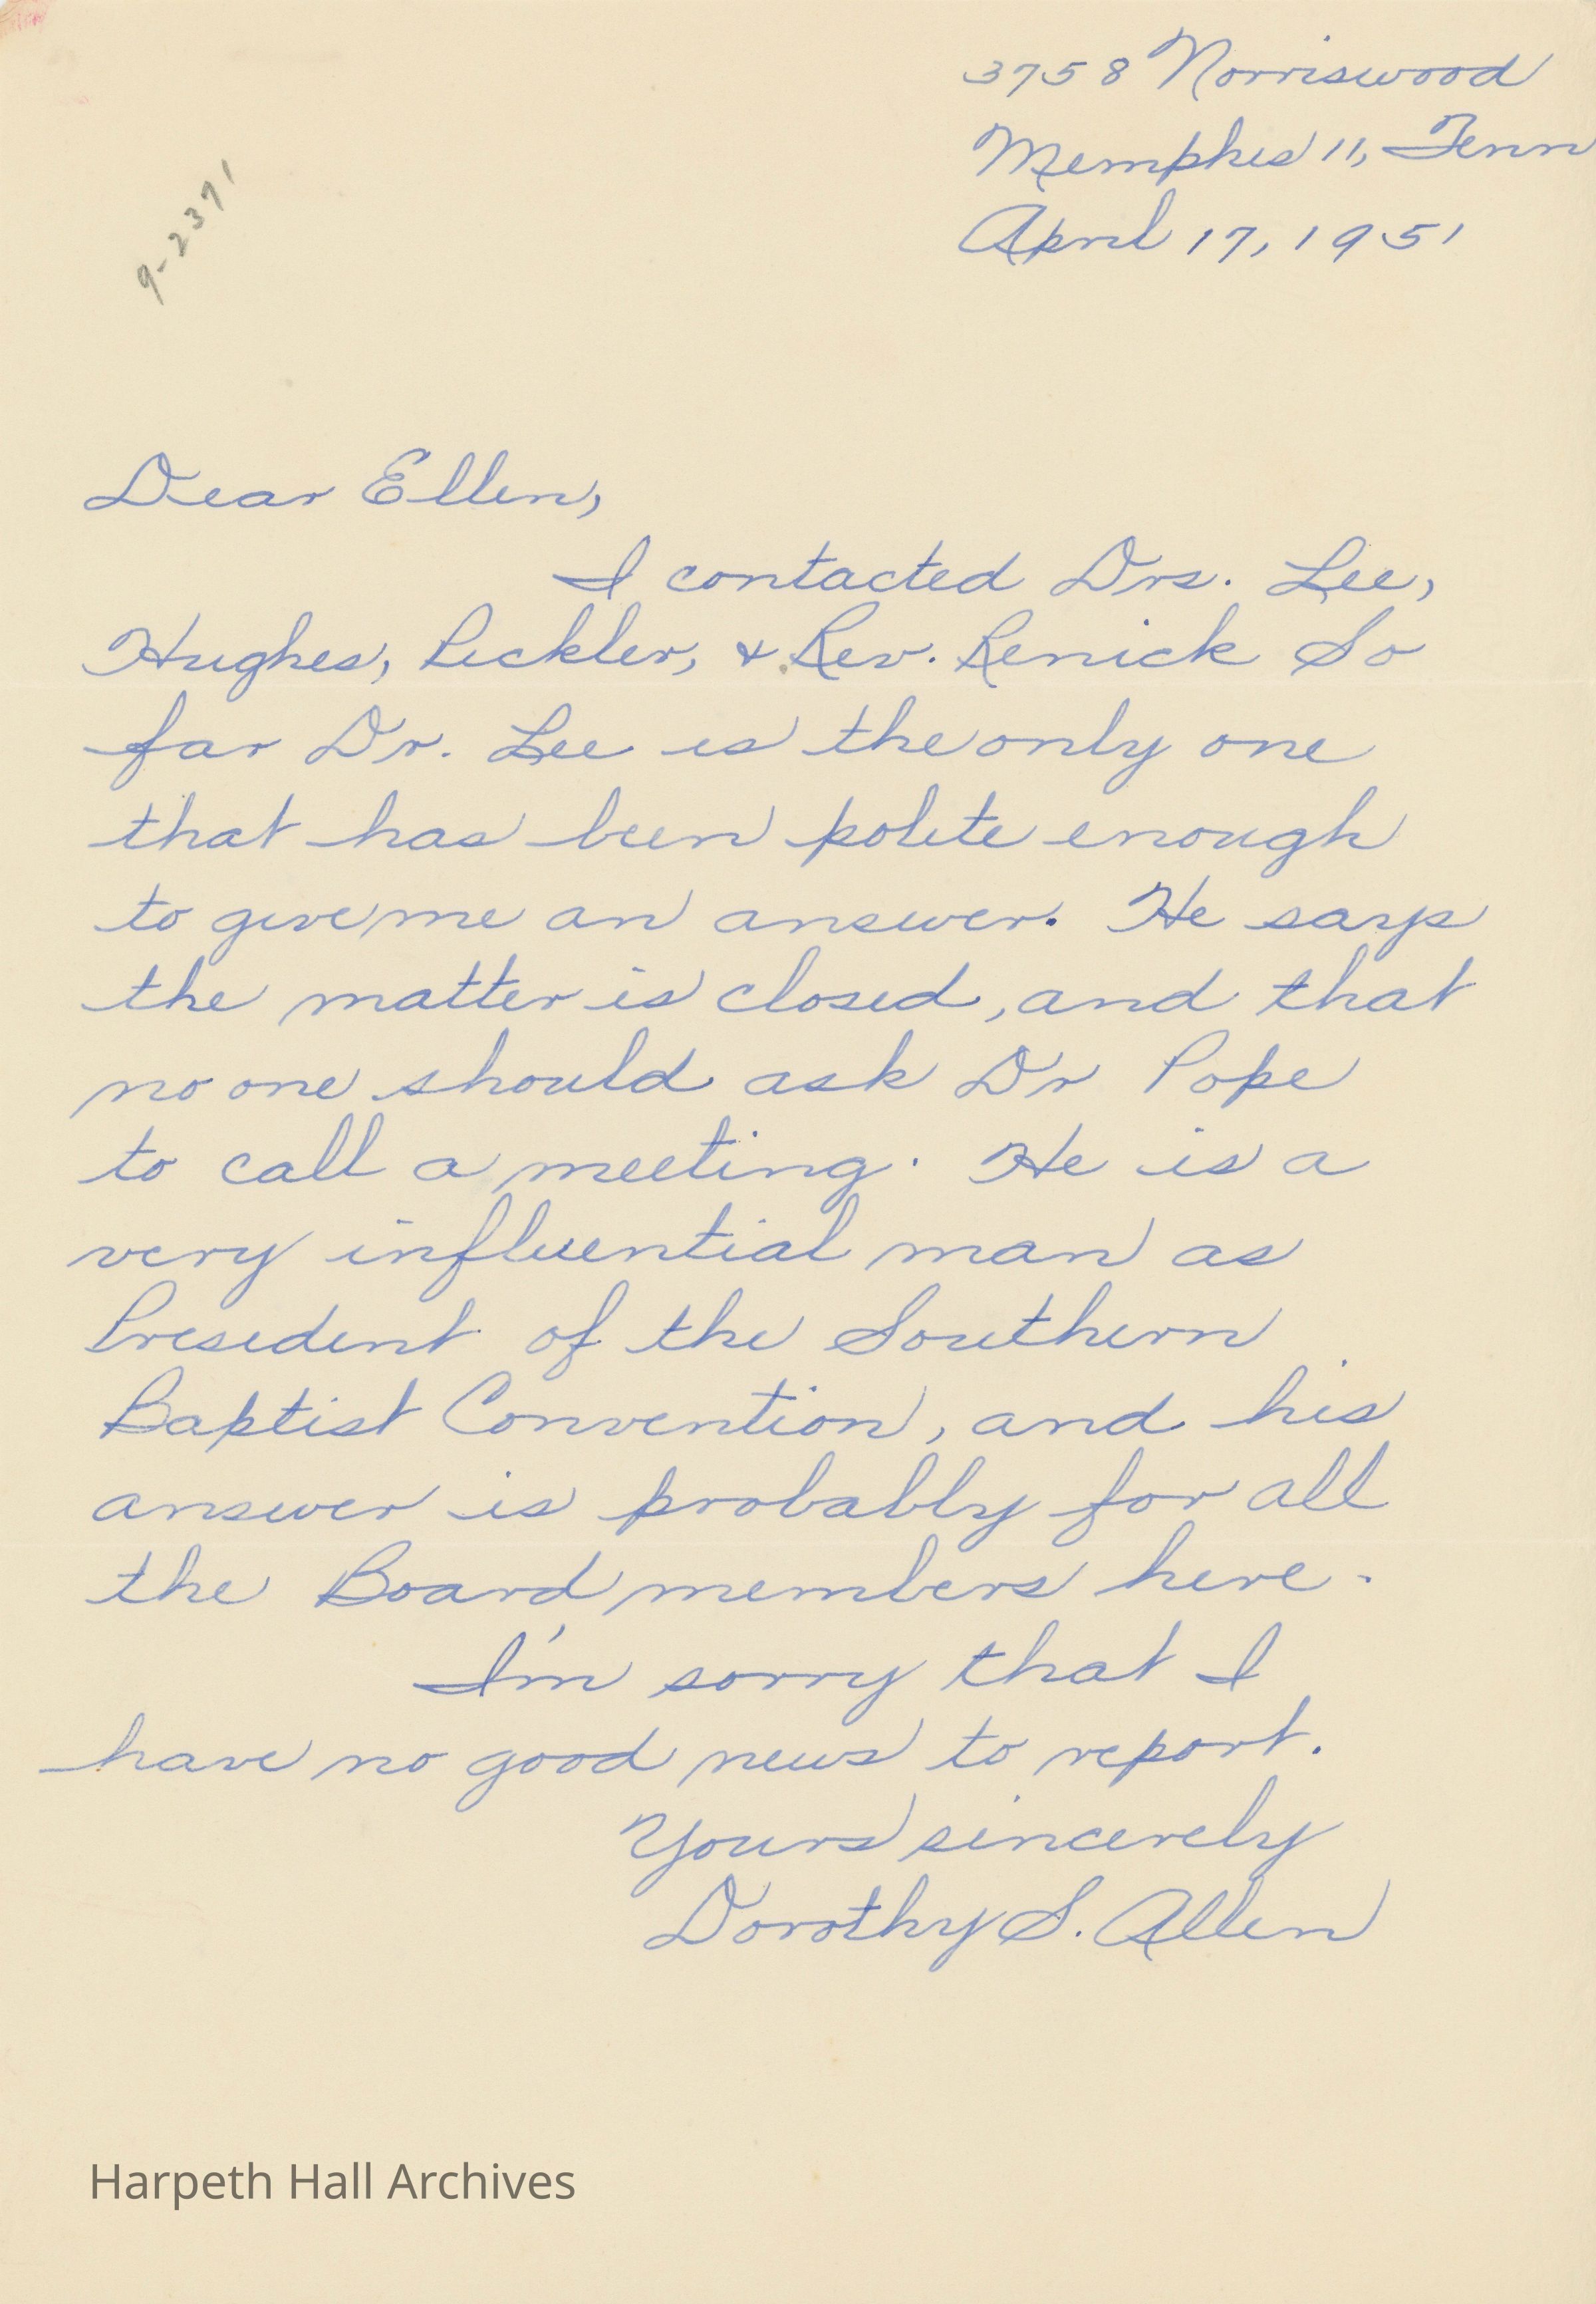 3758 Norriswood
Memphis 11, Tenn
April 17, 1951
9-2371
Dear Ellen,
I contacted Drs. Lee,
Hughes, Pickler, & Rev. Renick So
far Dr. Lee is the only one
that has been polite enough
to give me an answer. He says
the matter is closed, and that
no one should ask Dr Pope
to call a meeting. He is a
very influential man as
President of the Southern
Baptist Convention, and his
answer is probably for all
the Board members here.
I'm sorry that I
have no good news to report.
Yours sincerely
Dorothy S. Allen
Harpeth Hall Archives